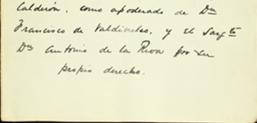 Calderón, como apoderado de Dn
Francisco de Valdivieso, y el Sargto
Dn Antonio de la Riva por su
propio derecho.